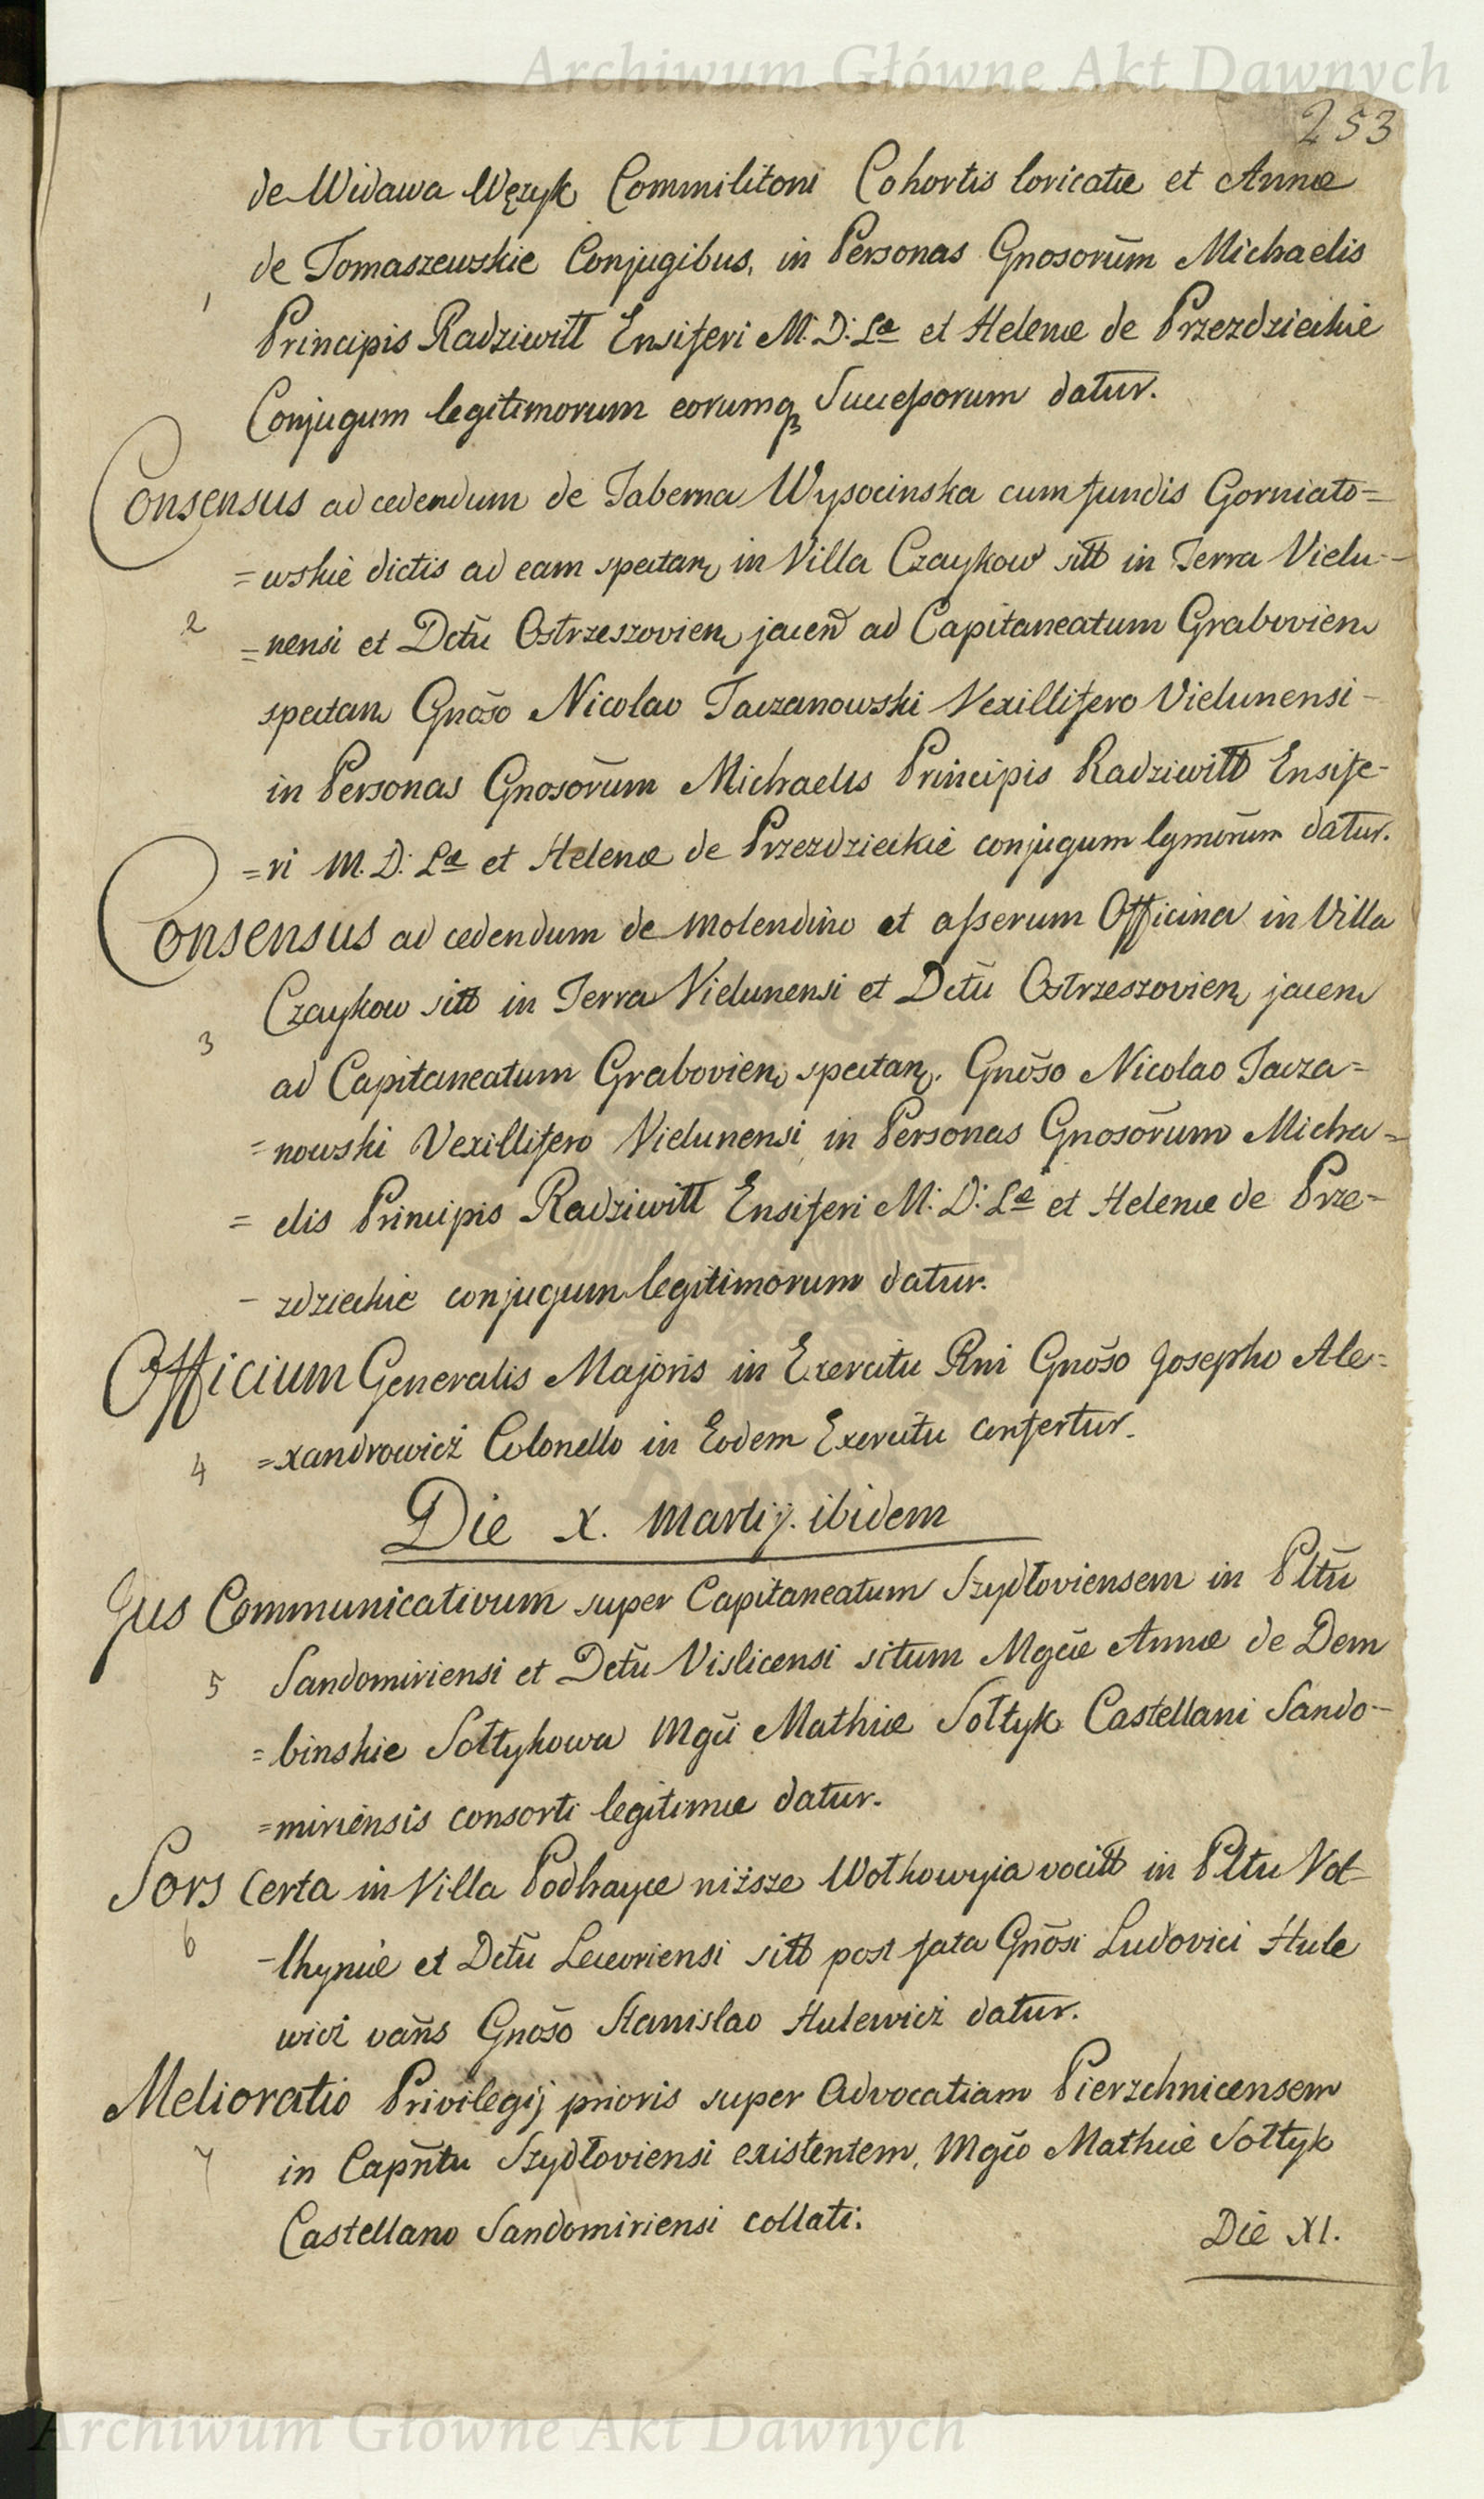 Archiwum Główne Akt Dawnych
253
de Widawa Wężyk Commilitoni Cohortis loricatæ et Annæ
de Tomaszewskie Conjugibus, in Personas Gnosorūm Michaelis
1
Principis Radziwiłł Ensiferi M. D: Læ et Helenæ de Przezdzieckie
Conjugum legitimorum eorumq₃ Successorum datur.
Consensus ad cedendum de Taberna Wysocinska cum fundis Gorniato=
=wskie dictis ad eam spectan in Villa Czaykow sitt in Terra Vielu-
2 =nensi et Dctū Ostrzeszovien jacen ad Capitaneatum Grabovien
spectan Gnōso Nicolao Taczanowski Vexillifero Vielunensi -
in Personas Gnosorūm Michaelis Principis Radziwiłł Ensife-
=ri M. D: Læ et Helenæ de Przezdzieckie conjugum lgmorūm datur.
Consensus ad cedendum de molendino et asserum Officina in Villa
Czaykow sitt in Terra Vielunensi et Dctū Ostrzeszovien jacen
3
ad Capitaneatum Grabovien spectan. Gnōso Nicolao Tacza=
=nowski Vexillifero Vielunensi in Personas Gnosorūm Micha=
=elis Principis Radziwiłł Ensiferi M: D: Læ et Helenæ de Prze=
- zdzieckie conjugum legitimorum datur.
Officium Generalis Majoris in Exercitu Rni Gnōso Josepho Ale=
4 =xandrowicż Colonello in Eodem Exercitu confertur.
Die X. Martij. ibidem
Jus Communicativum super Capitaneatum Szydłoviensem in Pltū
5 Sandomiriensi et Dctū Vislicensi situm Mgcæ Annæ de Dem
=binskie Sołtykowa Mgci Mathiæ Sołtyk Castellani Sando-
=miriensis consorti legitimæ datur.
Sors Certa in Villa Podhayce niższe Wołkowyia vocitt in Pltu Vol-
6 -lhyniæ et Dctū Luceoriensi sitt post fata Gnōsi Ludovici Hule
wicż vans Gnōso Stanislao Hulewicż datur.
Melioratio Privilegij prioris super Advocatiam Pierzchnicensem
7
in Capn̄tu Szydłoviensi existentem, Mgco Mathiæ Sołtyk
Castellano Sandomiriensi collati.
Die XI.
Archiwum Główne Akt Dawnych